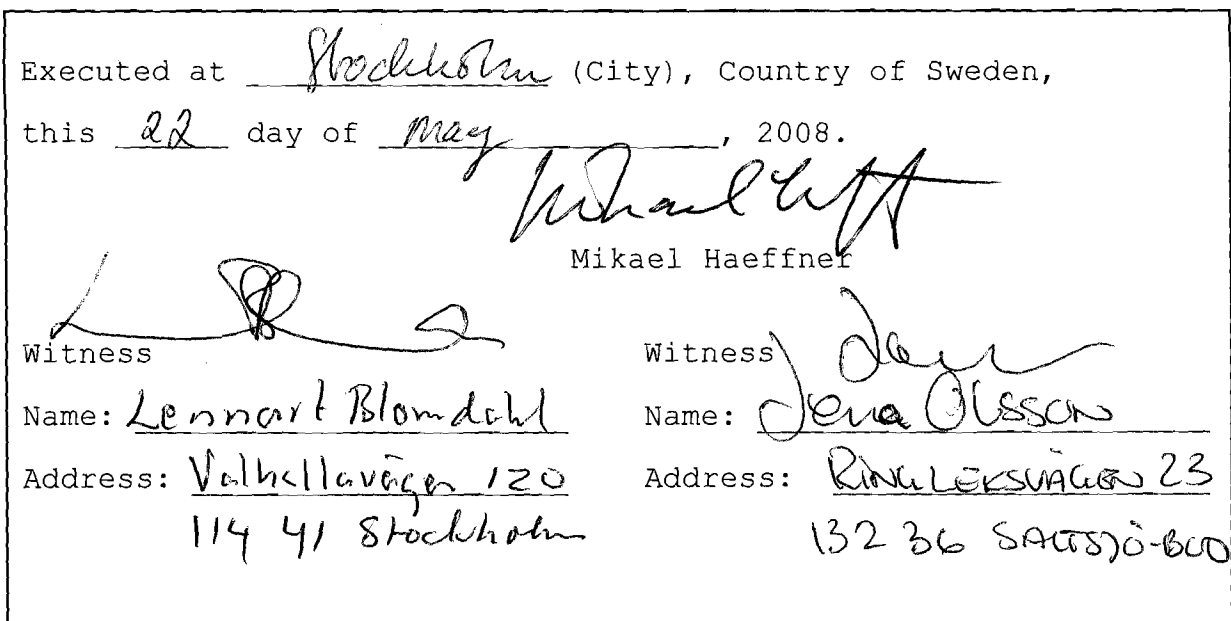 Executed at Stockholm (City), Country of Sweden,
this 22 day of May, 2008.
Mikael Haeffner
Witness
Name: Lennart Blomdahl
Address: Valhallavägen 120
114 41 Stockholm
Witness
Name: Lena Olsson
Address: RINGLEKSVÄGEN 23
132 36 SALTSJÖ-BOO